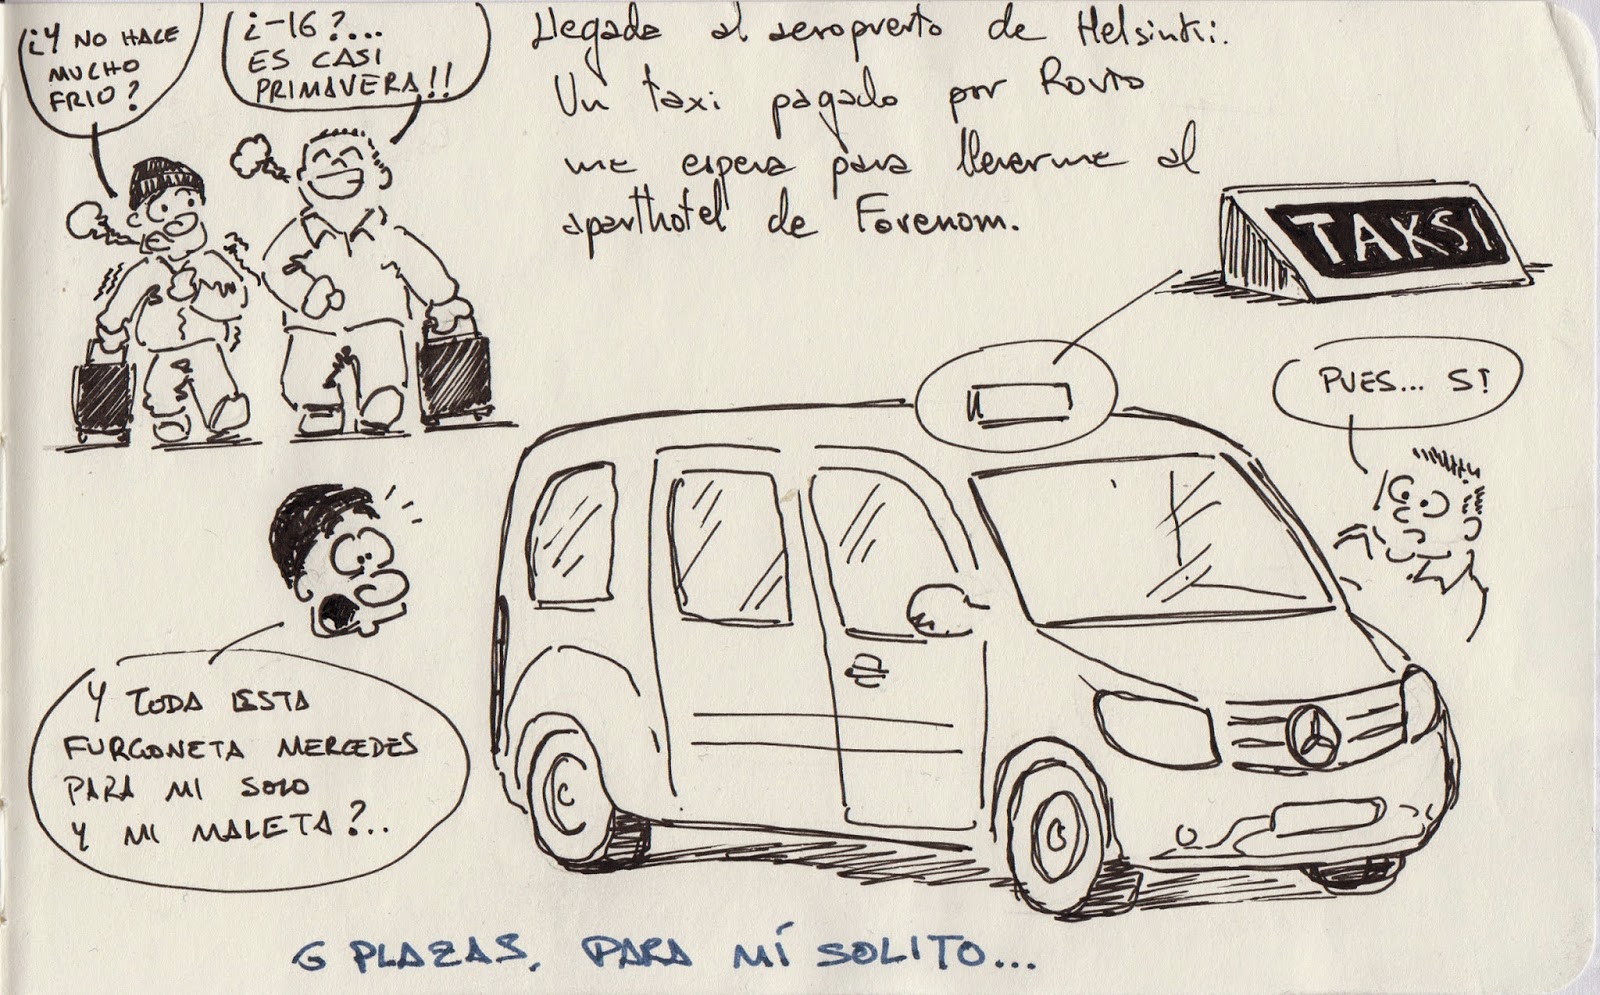 ¿Y NO HACE
MUCHO
FRIO?
¿-16?...
ES CASI
PRIMAVERA!!
Llegada al aeropuerto de Helsinki.
Un taxi pagado por Rovio
me espera para llevarme al
aparthotel de Forenom.
TAKSI
PUES... SI
Y TODA ESTA
FURGONETA MERCEDES
PARA MI SOLO
Y MI MALETA?..
6 PLAZAS, PARA MÍ SOLITO...